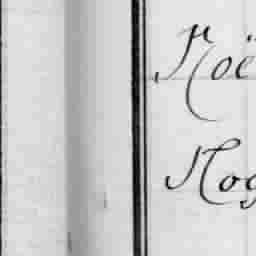 Noë
Nog